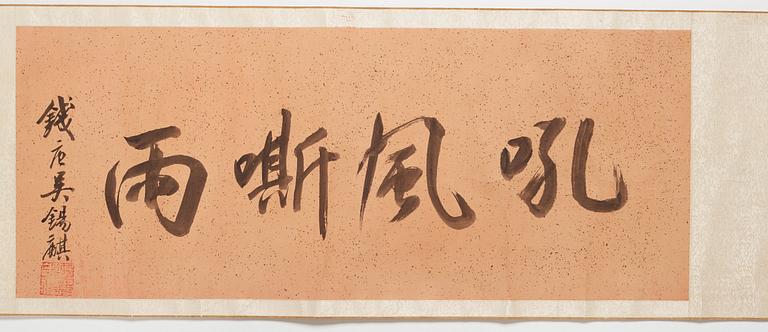 吼風嘶雨
錢唐吳錫麒